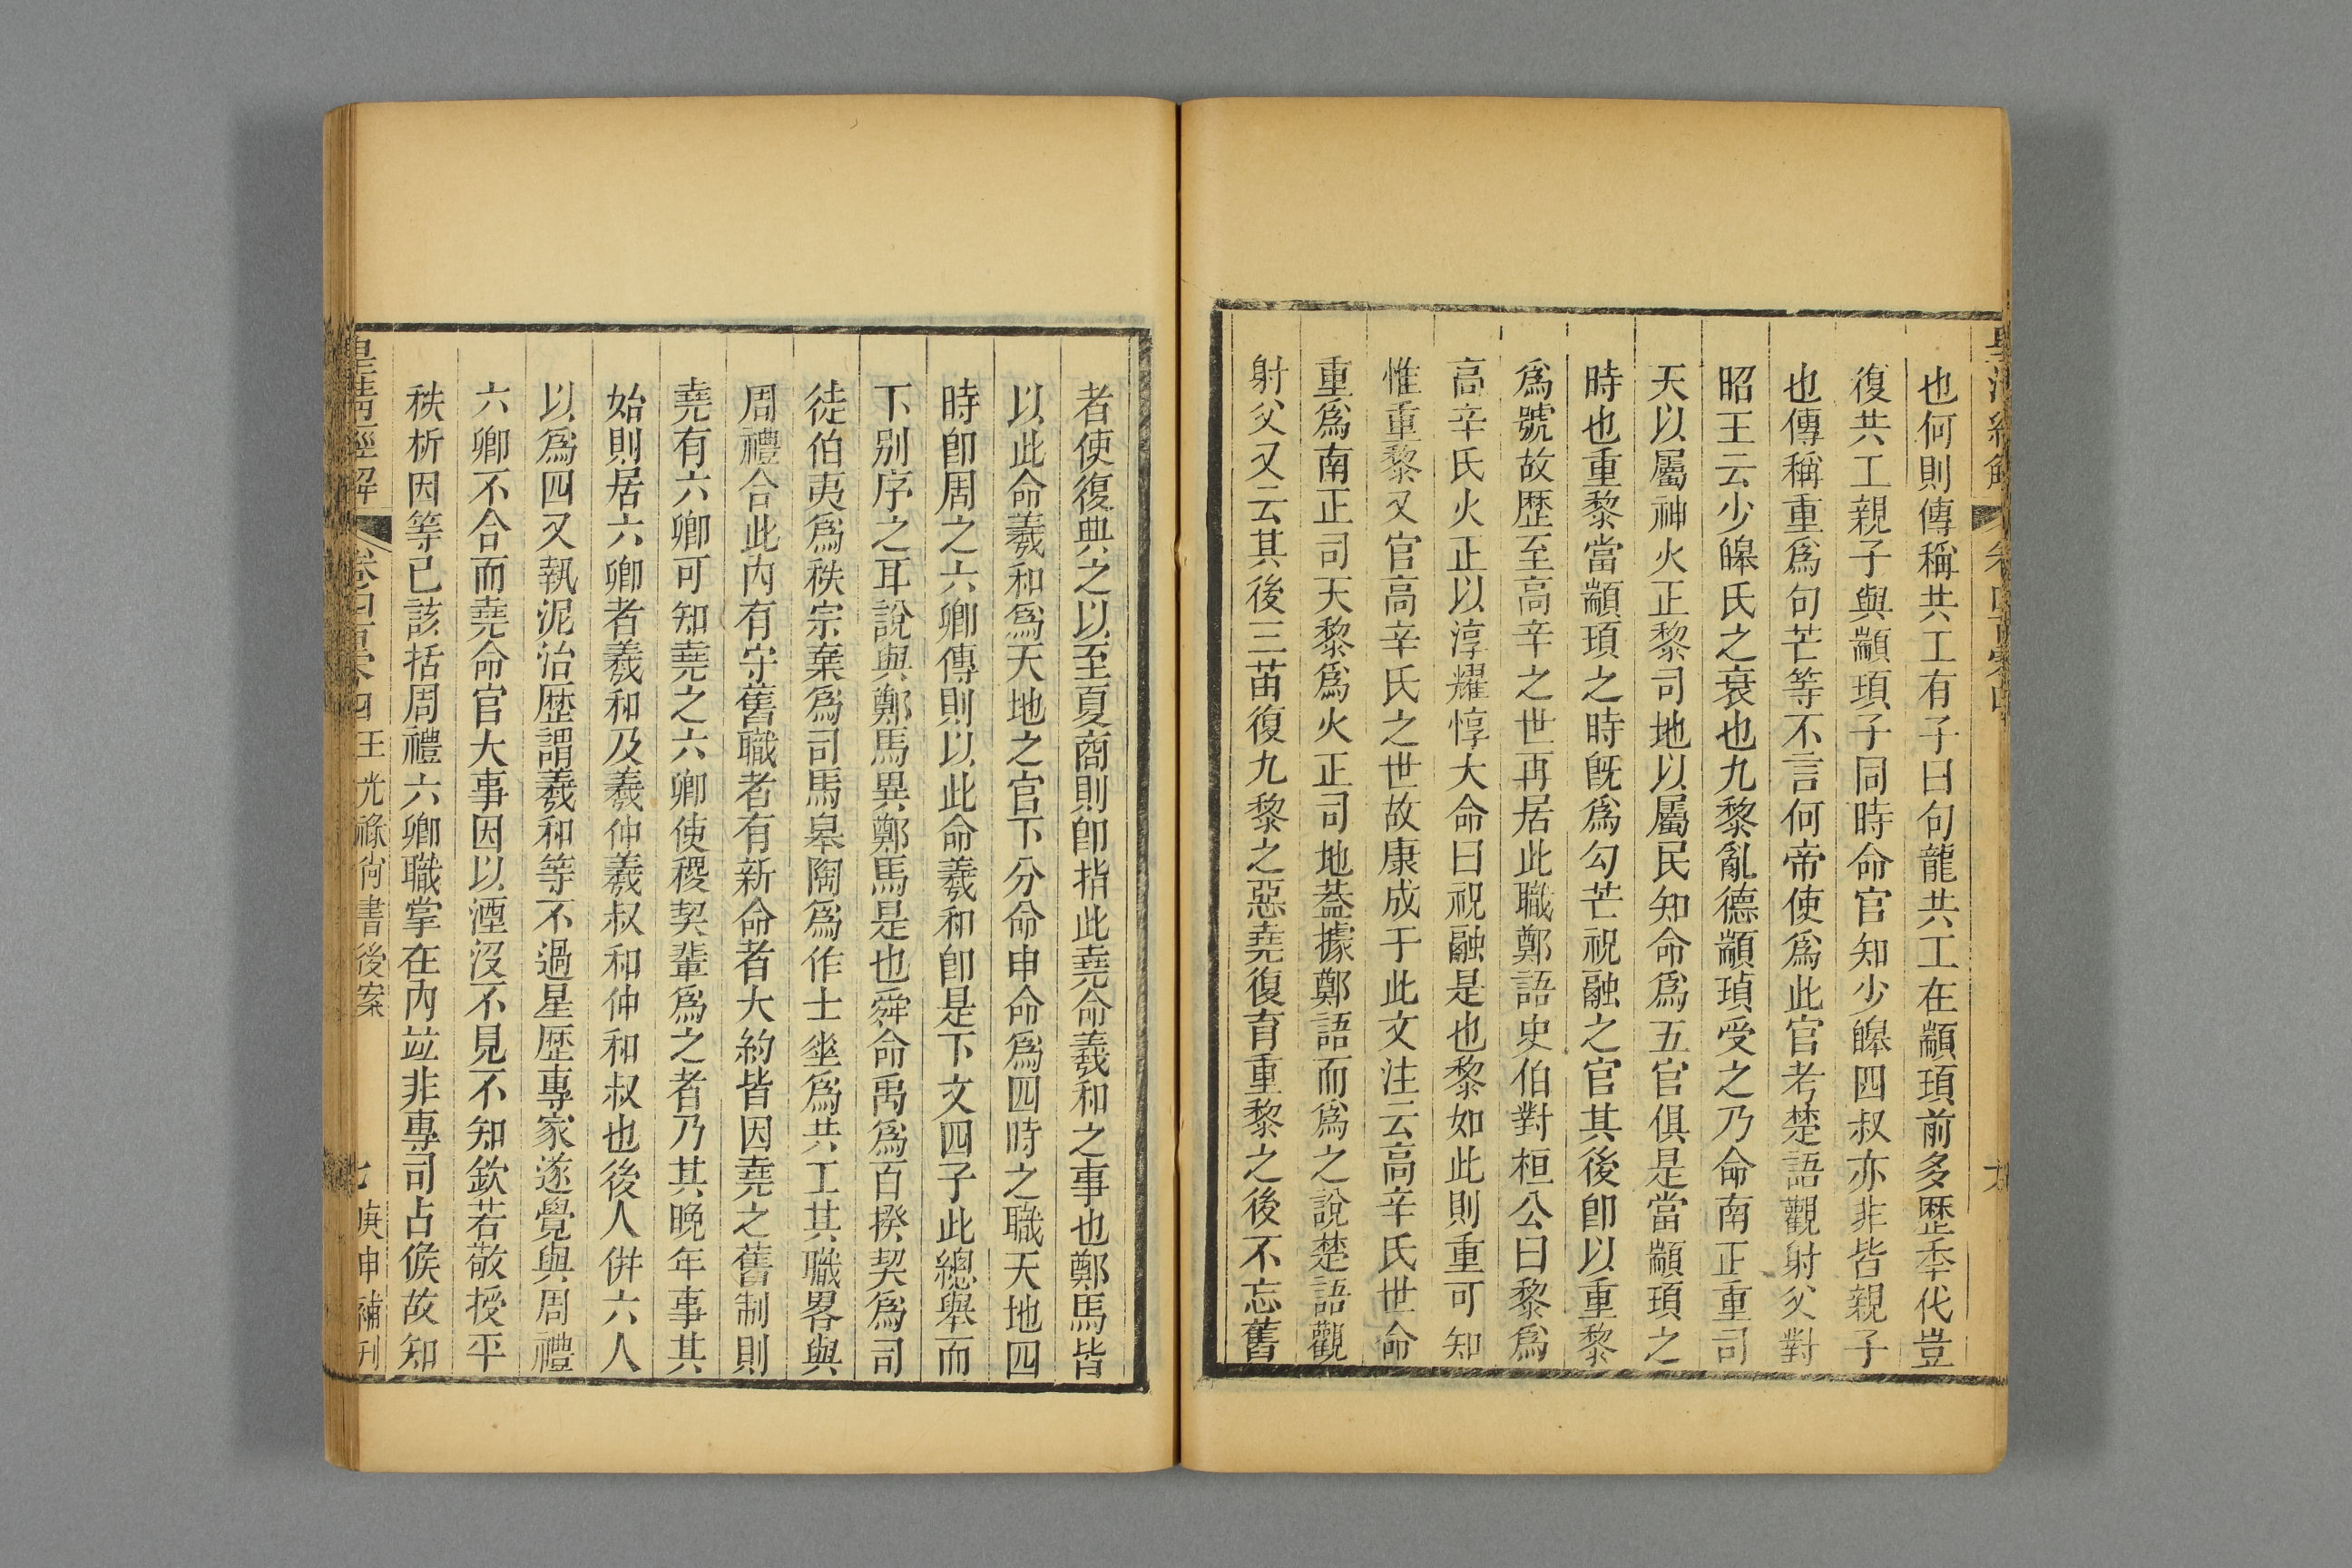 也何則傳稱共工有子曰句龍共工在顓頊前多歷秊代豈
復共工親子與顓頊子同時命官知少皞四叔亦非皆親子
也傳稱重爲句芒等不言何帝使爲此官考楚語觀射父對
昭王云少皞氏之衰也九黎亂德顓頊受之乃命南正重司
天以屬神火正黎司地以屬民知命爲五官俱是當顓頊之
時也重黎當顓頊之時旣爲勾芒祝融之官其後卽以重黎
爲號故歷至高辛之世再居此職鄭語史伯對桓公曰黎爲
高辛氏火正以淳耀惇大命曰祝融是也黎如此則重可知
惟重黎又官高辛氏之世故康成于此文注云高辛氏世命
重爲南正司天黎爲火正司地蓋據鄭語而爲之說楚語觀
射父又云其後三苗復九黎之惡堯復育重黎之後不忘舊
者使復典之以至夏商則卽指此堯命羲和之事也鄭馬皆
以此命羲和爲天地之官下分命申命爲四時之職天地四
時卽周之六卿傳則以此命羲和卽是下文四子此總舉而
下別序之耳說與鄭馬異鄭馬是也舜命禹爲百揆契爲司
徒伯夷爲秩宗棄爲司馬皋陶爲作士垂爲共工其職畧與
周禮合此內有守舊職者有新命者大約皆因堯之舊制則
堯有六卿可知堯之六卿使稷契輩爲之者乃其晚年事其
始則居六卿者羲和及羲仲羲叔和仲和叔也後人倂六人
以爲四又執泥治歷謂羲和等不過星歷專家遂覺與周禮
六卿不合而堯命官大事因以湮沒不見不知欽若敬授平
秩析因等已該括周禮六卿職掌在內竝非專司占候故知
皇淸經解 卷四百宋四 王光祿尙書後案 七 庚申補刋